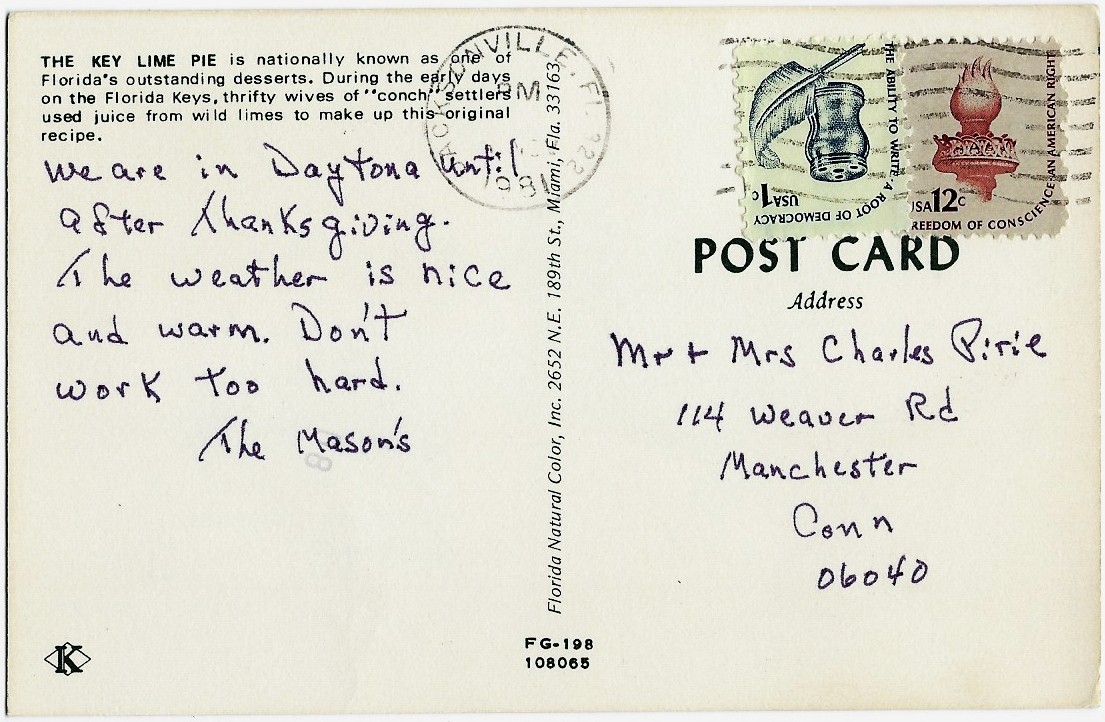 THE KEY LIME PIE is nationally known as one of
Florida's outstanding desserts. During the early days
on the Florida Keys, thrifty wives of "conch" settlers
used juice from wild limes to make up this original
recipe.
We are in Daytona until
after Thanksgiving.
The weather is nice
and warm. Don't
work too hard.
The Mason's
K
JACKSONVILLE, FL 322
PM
1981
Florida Natural Color, Inc. 2652 N.E. 189th St., Miami, Fla. 33163
FG-198
108065
THE ABILITY TO WRITE·A ROOT OF DEMOCRACY
USA 1c
USA 12c
FREEDOM OF CONSCIENCE·AN AMERICAN RIGHT
POST CARD
Address
Mr + Mrs Charles Pirie
114 Weaver Rd
Manchester
Conn
06040